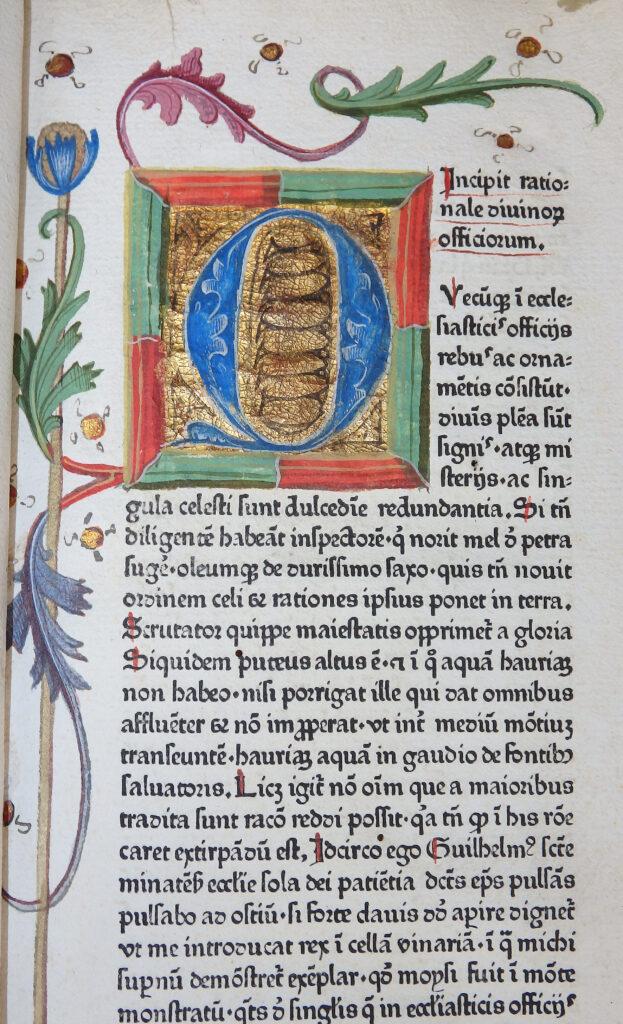 Incipit ratio-
nale diuinoꝝ
officiorum.
Q
Vecūqꝫ ī eccle-
siasticiˢ officijs
rebuˢ ac orna-
mētis cōsistūt·
diuīs plēa sūt
signiˢ·atqꝫ mi
sterijs·ac sin-
gula celesti sunt dulcedīe redundantia. Si tn̄
diligentē habeāt inspectorē·q̄ norit mel ꝺ̄ petra
sugeᷣ·oleumqꝫ de durissimo saxo·quis tn̄ nouit
ordinem celi ⁊ rationes ipsius ponet in terra.
Scrutator quippe maiestatis opprimet᷑ a gloria
Siquidem puteus altus ē·⁊ ī q̊ aquā hauriaꝫ
non habeo·nisi porrigat ille qui dat omnibus
affluēter ⁊ nō imꝓperat·vt int᷑ mediū mōtiuꝫ
transeuntē·hauriaꝫ aquā in gaudio de fontibꝰ
saluatoris. Licꝫ igit᷑ nō oīm que a maioribus
tradita sunt racō reddi possit·qᷓa tn̄ ꝙ ī his rōe
caret extirpādū est, Idcirco ego Guilhelmꝰ sct̄e
minatēᷣ eccl̄ie sola dei patiētia dct̄s ep̄s pulsās
pulsabo ad ostiū·si forte clauis dd̄ apire dignet᷑
vt me introducat rex ī cellā vinariā·ī q̄ michi
suꝑnū demōstret᷑ exēplar·qd̄ moysi fuit ī mōte
monstratū·qt̄s ꝺ̄ singl̄is q̄ in eccl̄iasticis officijˢ